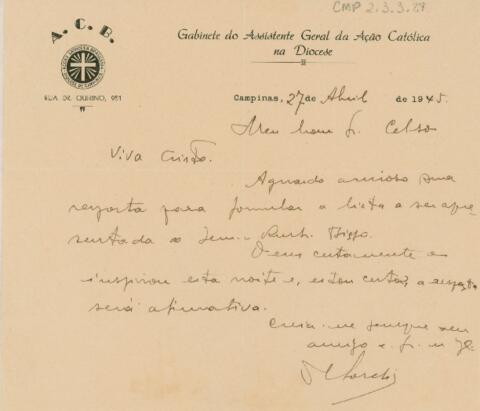 CMP 2.3.3.29
A. C. B.
Gabinete do Assistente Geral da Ação Católica
na Diocese
RUA DR. QUIRINO, 951
Campinas, 27 de Abril de 1945.
Meu bom Celso
Viva Cristo.
Aguardo ansioso sua
resposta para formular a lista a ser apre
sentada ao Bispo.
Deus certamente o
inspirou esta noite e, estou certo, a resposta
será afirmativa.
Creia-me sempre seu
amigo e